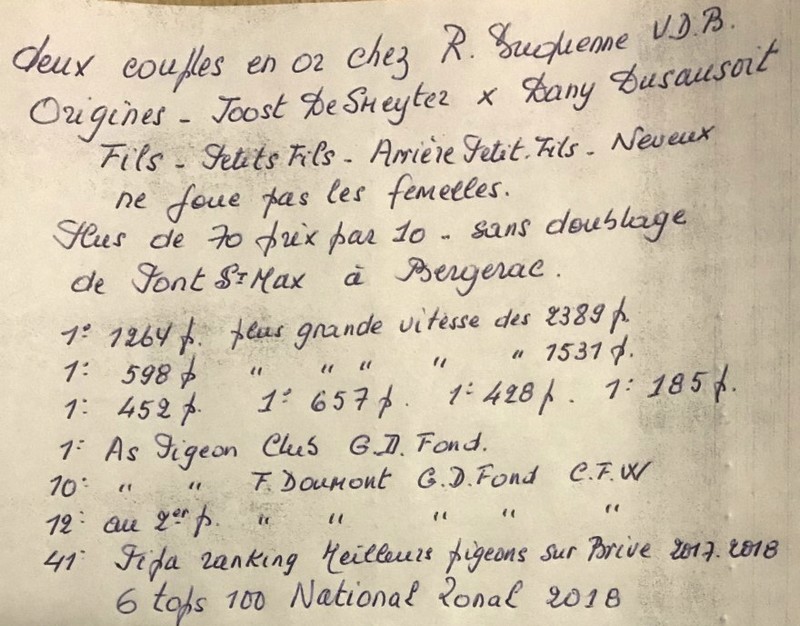 deux couples en or chez R. Duquenne V.D.B.
Origines - Joost De Smeyter x Dany Dusausoit
Fils - Petits Fils - Arrière Petit. Fils - Neveux
ne joue pas les femelles.
Plus de 70 prix par 10 - sans doublage
de Pont St Max à Bergerac.
1° 1264 p. plus grande vitesse des 2389 p.
1: 598 p " " " " " 1531 p.
1: 452 p. 1° 657 p. 1: 428 p. 1: 185 p.
1: As Pigeon Club G.D. Fond.
10: " " F. Doumont G.D. Fond C.F.W
12: au 2er p. " " " " "
41: Pipa ranking Meilleurs pigeons sur Brive 2017.2018
6 tops 100 National Zonal 2018